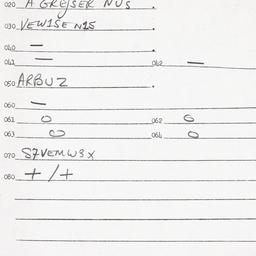 020 A GREJSER NUS .
030 VEW1SEN15
040 — .
041 — 042 —
050 ARBUZ .
060 —
061 O 062 O
063 O 064 O
070 S7VEMW3X
080 + / +